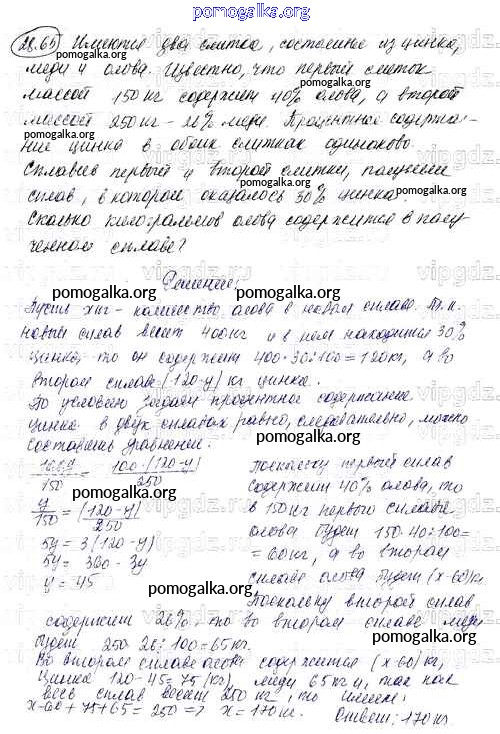 pomogalka.org
28.65 Имеются два слитка, состоящие из цинка,
меди и олова. Известно, что первый слиток
массой 150 кг содержит 40% олова, а второй
массой 250 кг – 26% меди. Процентное содержа-
ние цинка в обоих слитках одинаково.
Сплавив первый и второй слитки, получили
сплав, в котором оказалось 30% цинка.
Сколько килограммов олова содержится в полу-
ченном сплаве?
Решение:
pomogalka.org
Пусть x кг – количество олова в новом сплаве. Т.к.
новый сплав весит 400 кг и в нем находится 30%
цинка, то он содержит 400·30:100=120 кг, а во
втором сплаве (120-y) кг цинка.
По условию задачи процентное содержание
цинка в двух сплавах равно, следовательно, можно
составить уравнение:
100y/150 = 100·(120-y)/250
y/150 = (120-y)/250
5y = 3(120-y)
5y = 360 - 3y
y = 45
Поскольку первый сплав
содержит 40% олова, то
в 150 кг первого сплава
олова будет 150·40:100=
=60 кг, а во втором
сплаве олова будет (x-60) кг.
Поскольку второй сплав
содержит 26%, то во втором сплаве меди
будет 250·26:100=65 кг.
Во втором сплаве олова содержится (x-60) кг,
цинка 120-45=75 (кг), меди 65 кг и, так как
весь сплав весит 250 кг, то имеем:
x-60+75+65=250 => x=170 кг. Ответ: 170 кг.
pomogalka.org